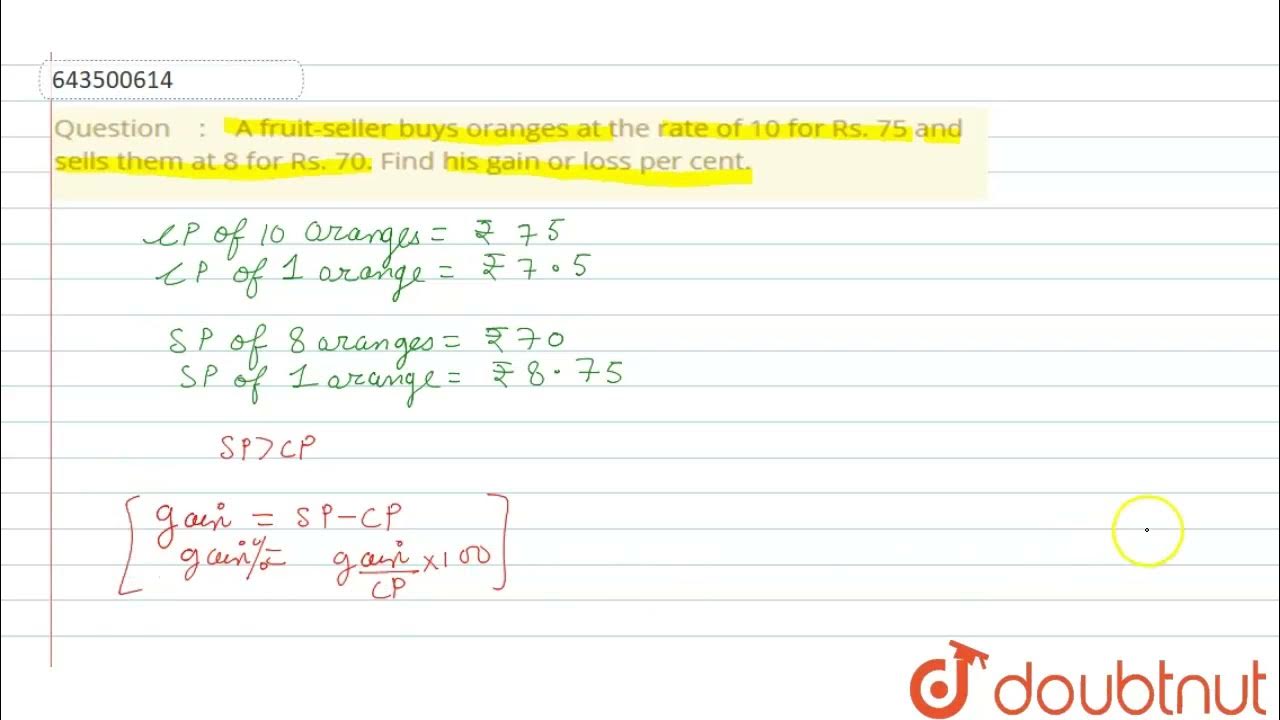 643500614
Question : A fruit-seller buys oranges at the rate of 10 for Rs. 75 and
sells them at 8 for Rs. 70. Find his gain or loss per cent.
CP of 10 oranges = ₹ 75
CP of 1 orange = ₹ 7.5
SP of 8 oranges = ₹ 70
SP of 1 orange = ₹ 8.75
SP > CP
gain = SP - CP
gain % = gain/CP × 100
doubtnut